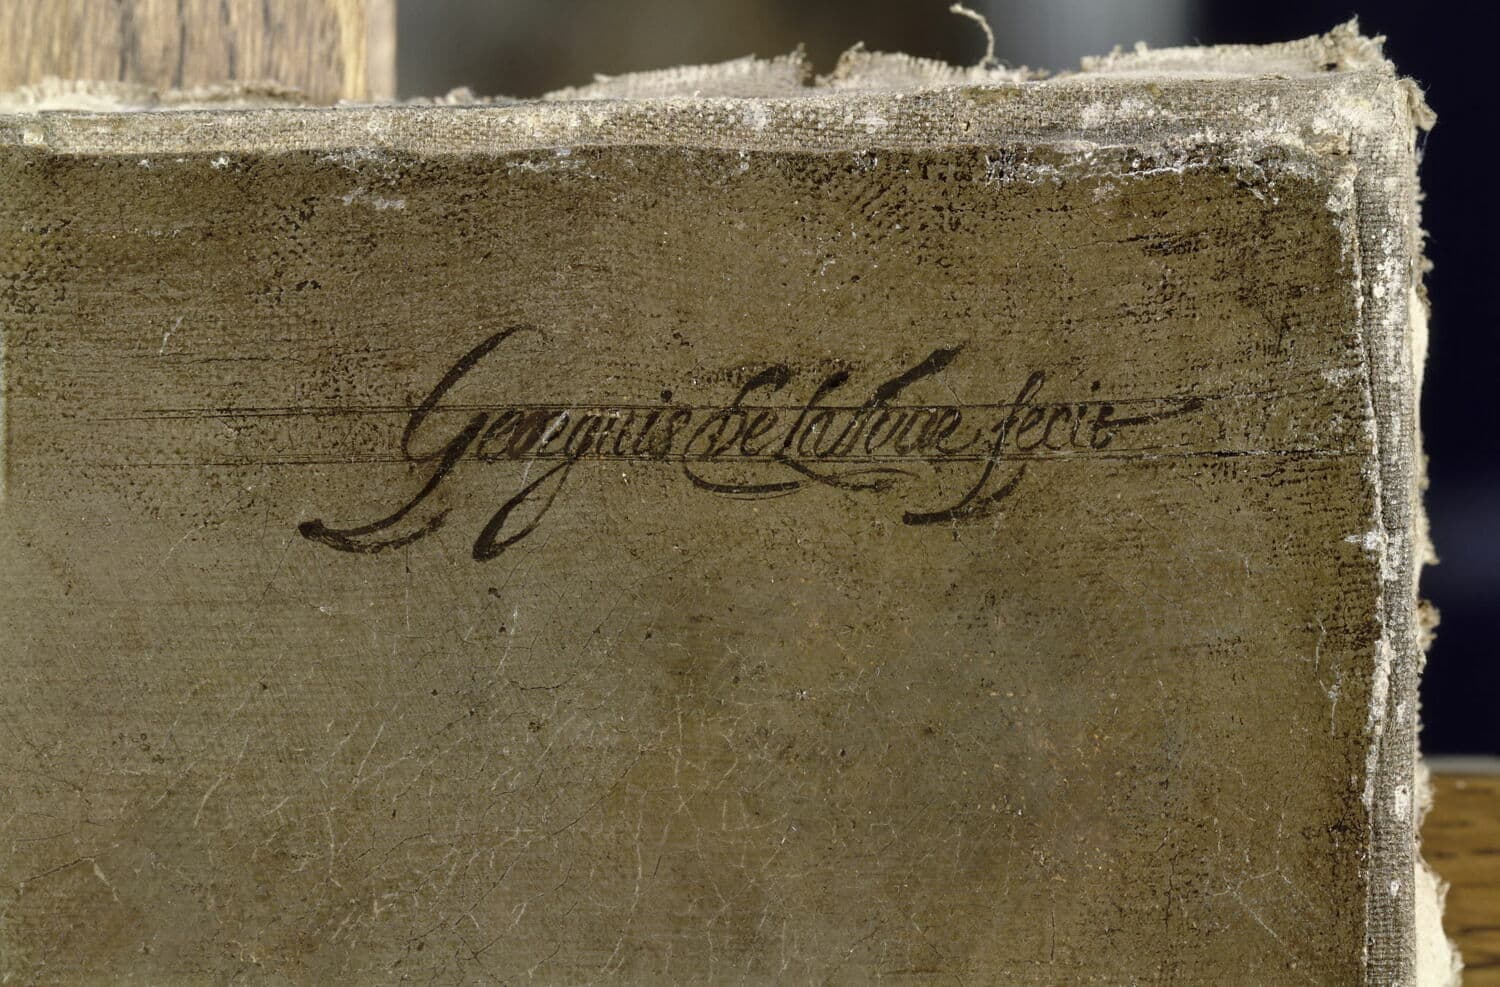 Georgius De La Tour fecit